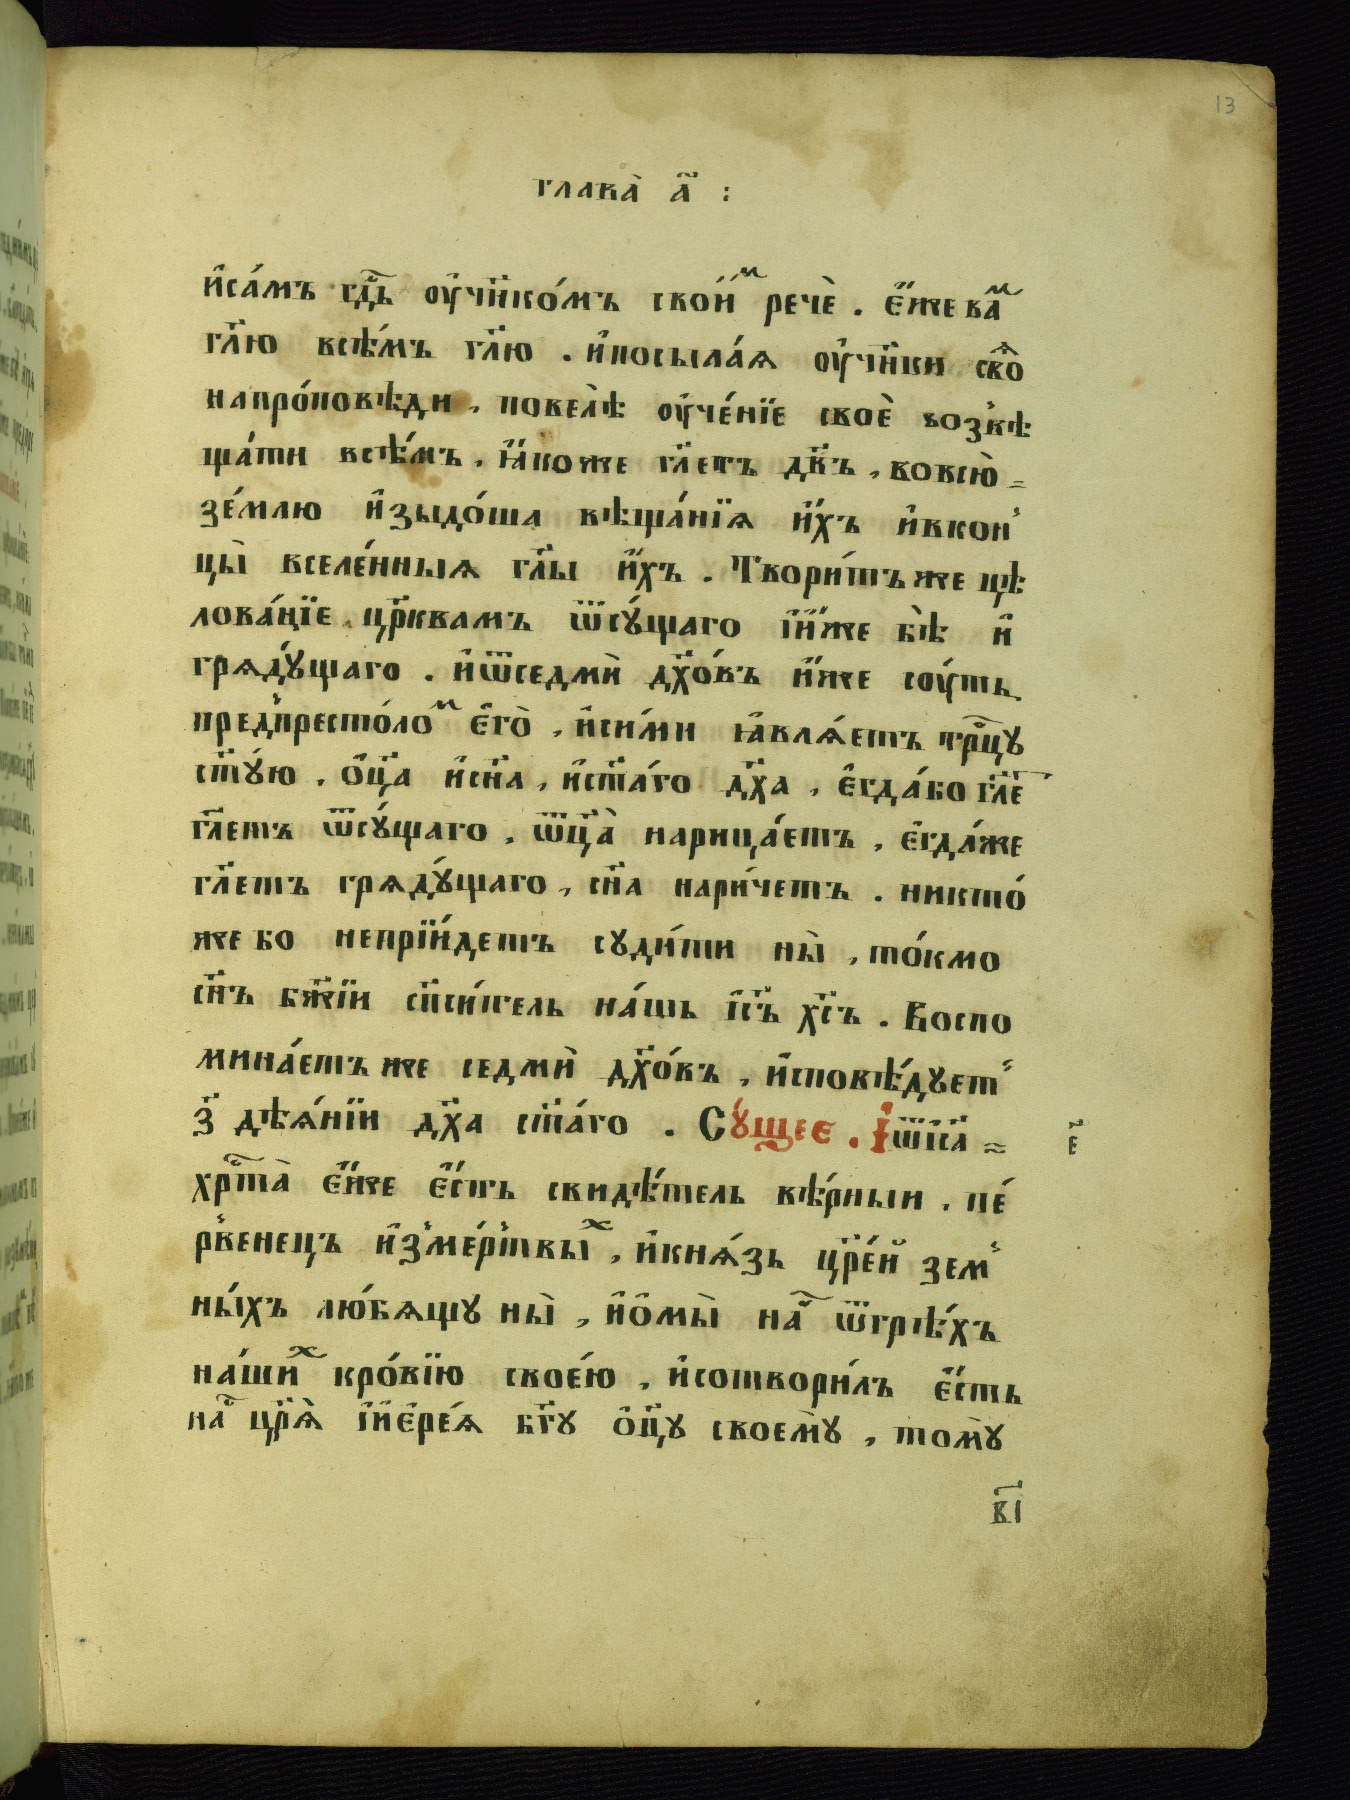 13
глава̀ а҃ :
и҆са́мъ гдⷭ҇ь ᲂу҆чн҃ко́мъ свои́ⷨ речѐ . є҆́же ваⷨ
гл҃ю всѣ́мъ гл҃ю . и҆посыла́ѧ ᲂу҆чн҃ки своѧⷽ
напро́повѣди , повелѣ̀ ᲂу҆че́нїе своѐ возвѣ
ща́ти всѣ́мъ , ꙗ҆́коже гл҃етъ дв҃ъ , вовсю̀ =
зе́млю и҆зыдо́ша вѣща́нїѧ и҆́хъ и҆вкон
цы̀ вселе́нныѧ гл҃ы и҆́хъ . Твори́тъже цѣ
лова́нїе цр҃квамъ ѿсꙋ́щаго і҆и҆́же бѣ̀ и҆
грѧдꙋ́щаго . и҆ѿседмѝ дх҃о́въ и҆́же сᲂу́ть
предпресто́лоⷨ є҆го̀ , и҆си́ми ꙗ҆влѧ́етъ трⷪ҇цꙋ
ст҃ꙋ́ю . ѻ҆ц҃а и҆сн҃а , и҆ст҃а́го дх҃а , є҆гда́бо гл҃е
гл҃етъ ѿсꙋ́щаго , ѿц҃а̀ нарица́етъ , є҆гда́же
гл҃етъ грѧдꙋ́щаго , сн҃а нари́четъ . никто́
же бо непрїи́детъ сꙋди́ти ны̀ , то́кмо
сн҃ъ бж҃їи сп҃си́тель на́шь і҆с҃ъ хс҃ъ . Воспо
мина́етъ же седмѝ дх҃о́въ , и҆сповѣ́дꙋет
з҃ дѣѧ́нїи дх҃а ст҃а́го . Сꙋ́щее . І҆ѿі҆с҃а =
є҃
хрⷭ҇та̀ є҆́же є҆́сть свидѣ́тель вѣ́рныи , пе́
рвенецъ и҆змертвыⷯ , и҆кнѧ́зь цр҃е́й зем
ны́хъ лю́бѧщꙋ ны̀ , и҆ѻ҆мы̀ наⷭ҇ ѿгрѣ́хъ
на́шиⷯ кро́вїю свое́ю , и҆сотвори́лъ є҆́сть
наⷭ҇ цр҃ѧ̀ і҆и҆є҆ре́ѧ бг҃ꙋ ѻ҆ц҃ꙋ своемꙋ̀ , томꙋ̀
в҃і